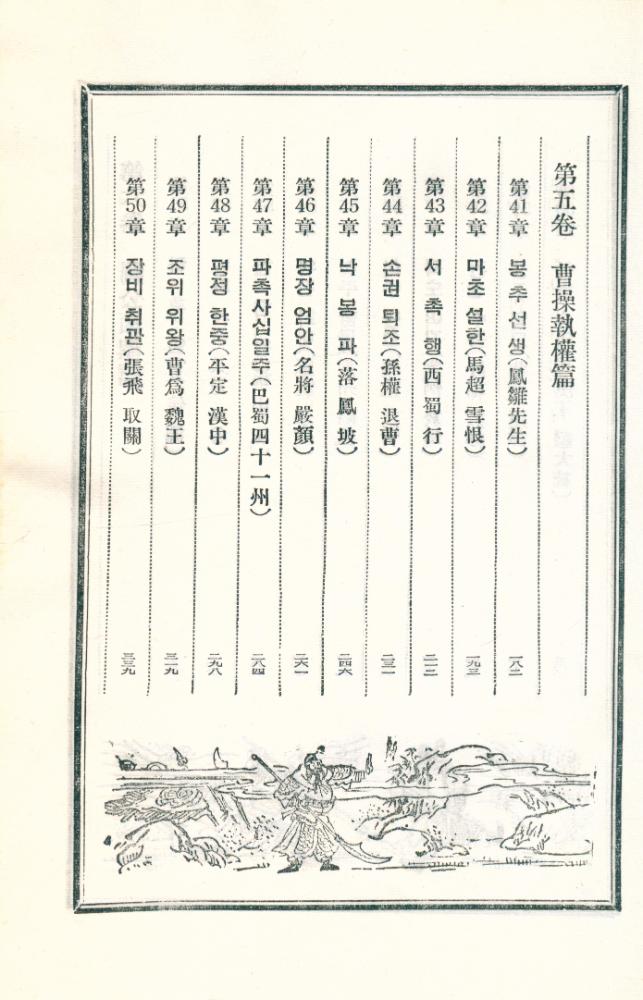 第五卷 曹操執權篇
第41章 봉추선생(鳳雛先生) 一八二
第42章 마초 설한(馬超 雪恨) 一九三
第43章 서촉행(西蜀行) 二一二
第44章 손권 퇴조(孫權 退曹) 二三一
第45章 낙봉파(落鳳坡) 二四六
第46章 명장 엄안(名將 嚴顏) 二六一
第47章 파촉사십일주(巴蜀四十一州) 二八四
第48章 평정 한중(平定 漢中) 二九八
第49章 조위 위왕(曹爲 魏王) 三一九
第50章 장비 취관(張飛 取關) 三三九